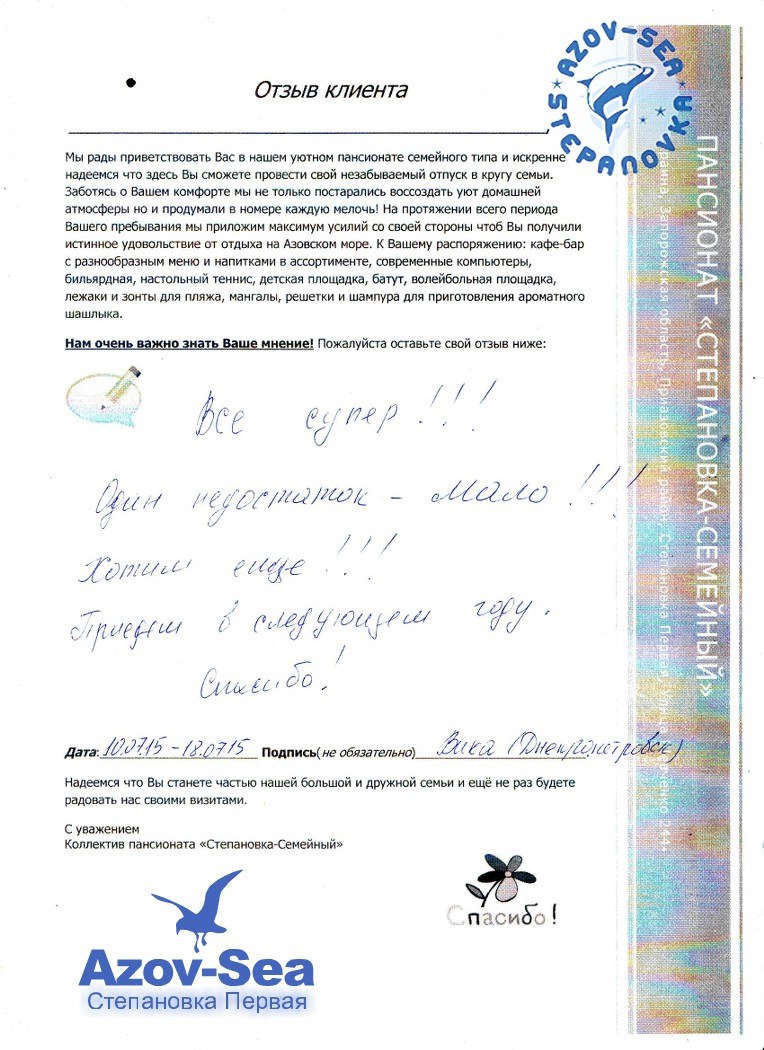 AZOV-SEA
STEPANOVKA
Отзыв клиента
Мы рады приветствовать Вас в нашем уютном пансионате семейного типа и искренне
надеемся что здесь Вы сможете провести свой незабываемый отпуск в кругу семьи.
Заботясь о Вашем комфорте мы не только постарались воссоздать уют домашней
атмосферы но и продумали в номере каждую мелочь! На протяжении всего периода
Вашего пребывания мы приложим максимум усилий со своей стороны чтоб Вы получили
истинное удовольствие от отдыха на Азовском море. К Вашему распоряжению: кафе-бар
с разнообразным меню и напитками в ассортименте, современные компьютеры,
бильярдная, настольный теннис, детская площадка, батут, волейбольная площадка,
лежаки и зонты для пляжа, мангалы, решетки и шампура для приготовления ароматного
шашлыка.
Нам очень важно знать Ваше мнение! Пожалуйста оставьте свой отзыв ниже:
Все супер!!!
Один недостаток - Мало!!!
Хотим еще!!!
Приедем в следующем году.
Спасибо!
Дата: 10.07.15 - 18.07.15 Подпись(не обязательно) Вика (Днепропетровск)
Надеемся что Вы станете частью нашей большой и дружной семьи и ещё не раз будете
радовать нас своими визитами.
С уважением
Коллектив пансионата «Степановка-Семейный»
Спасибо!
Azov-Sea
Степановка Первая
ПАНСИОНАТ «СТЕПАНОВКА-СЕМЕЙНЫЙ»
Запорожская область, Приазовский район, Степановка Первая